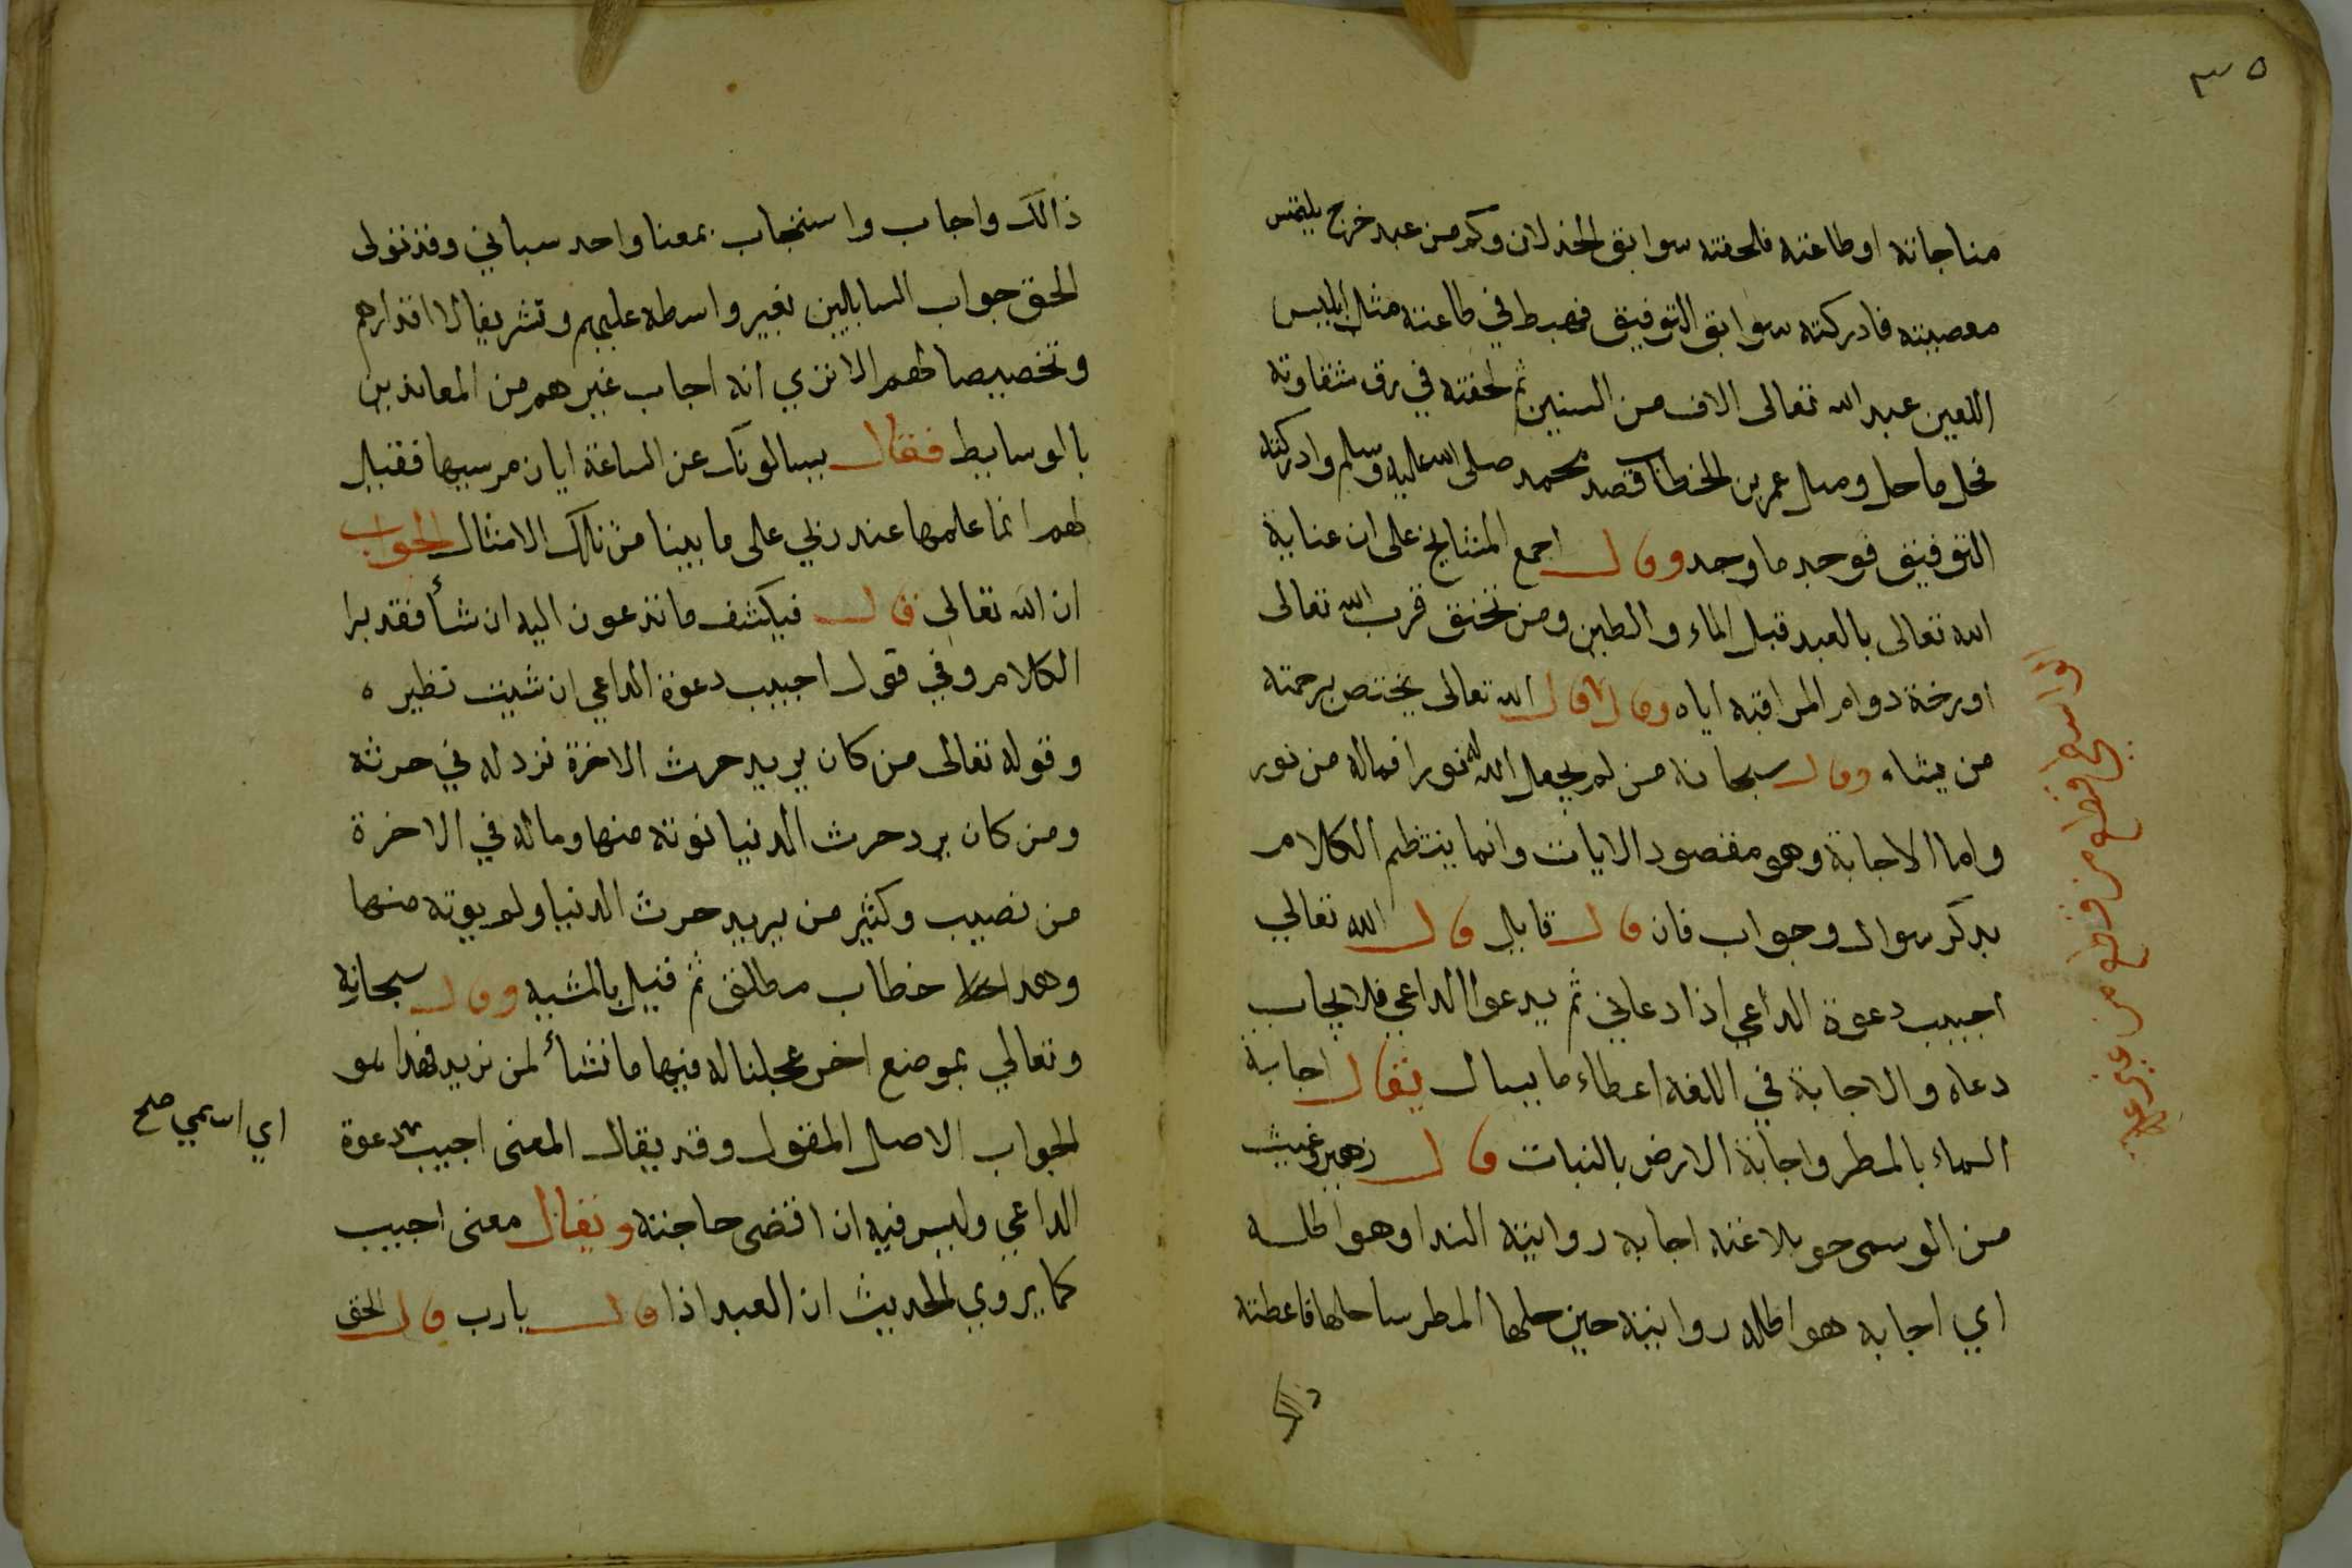 ٣٥
مناجاته او طاعته فلحقته سوابق الخذلان وكم من عبد خرج يلتمس
معصيته فادركته سوابق التوفيق فهبط في طاعته مثال ابليس
اللعين عبد الله تعالى الاف من السنين ثم لحقته في شقاوته
فحل ما حل ومثال عمر بن الخطاب قصد محمد صلى الله عليه وسلم وادركته
التوفيق فوجد ما وجد وقال اجمع المشايخ على ان عناية
الله تعالى بالعبد قبل الماء والطين ومن تحقق قرب الله تعالى
اورثه دوام المراقبة اياه وقال قال الله تعالى يختص برحمته
من يشاء وقال سبحانه من لم يجعل الله له نورا فماله من نور
واما الاجابة وهو مقصود الايات وانما ينتظم الكلام
بذكر سوال وجواب فان قال قايل قال الله تعالي
اجيب دعوة الداعي اذا دعاني ثم يدعوا الداعي فلا يجاب
دعاه والاجابة في اللغة اعطاء ما يسال يقال اجابة
السماء بالمطر واجابة الارض بالنبات قال زهير وغيث
من الوسمى حو بلاغته اجابه روابيه الندا وهواطله
اي اجابه هواطله روابيه حين حلها المطر ساحلها فاعطته
ذالك
ذالك واجاب واستجاب بمعنا واحد سباني وقد تولى
الحق جواب السايلين بغير واسطه عليهم وتشريفا لا اقدارهم
وتخصيصا لهم الا تري انه اجاب غيرهم من المعاندين
بالوسايط فقال يسالونك عن الساعة ايان مرسيها فقيل
لهم انما علمها عند ربي على ما بينا من تلك الامثال الجواب
ان الله تعالى قال فيكشف ما تدعون اليه ان شأ فقد برا
الكلام وفي قول اجيب دعوة الداعي ان شيت نظيره
وقوله تعالى من كان يريد حرث الاخرة نزد له في حرثه
ومن كان يرد حرث الدنيا نوته منها وماله في الاخرة
من نصيب وكثير من يريد حرث الدنيا ولم يوته منها
وهذا خطاب مطلق ثم قيل بالمشيه وقال سبحانه
وتعالي بموضع اخر عجلنا له فيها ما نشأ لمن نريد فهذا هو
الجواب الاصل المقول وقد يقال المعنى اجيب دعوة
اي اسمي صح
الداعي وليس فيه ان اقضى حاجته ويقال معنى اجيب
كما يروي الحديث ان العبد اذا قال يارب قال الحق